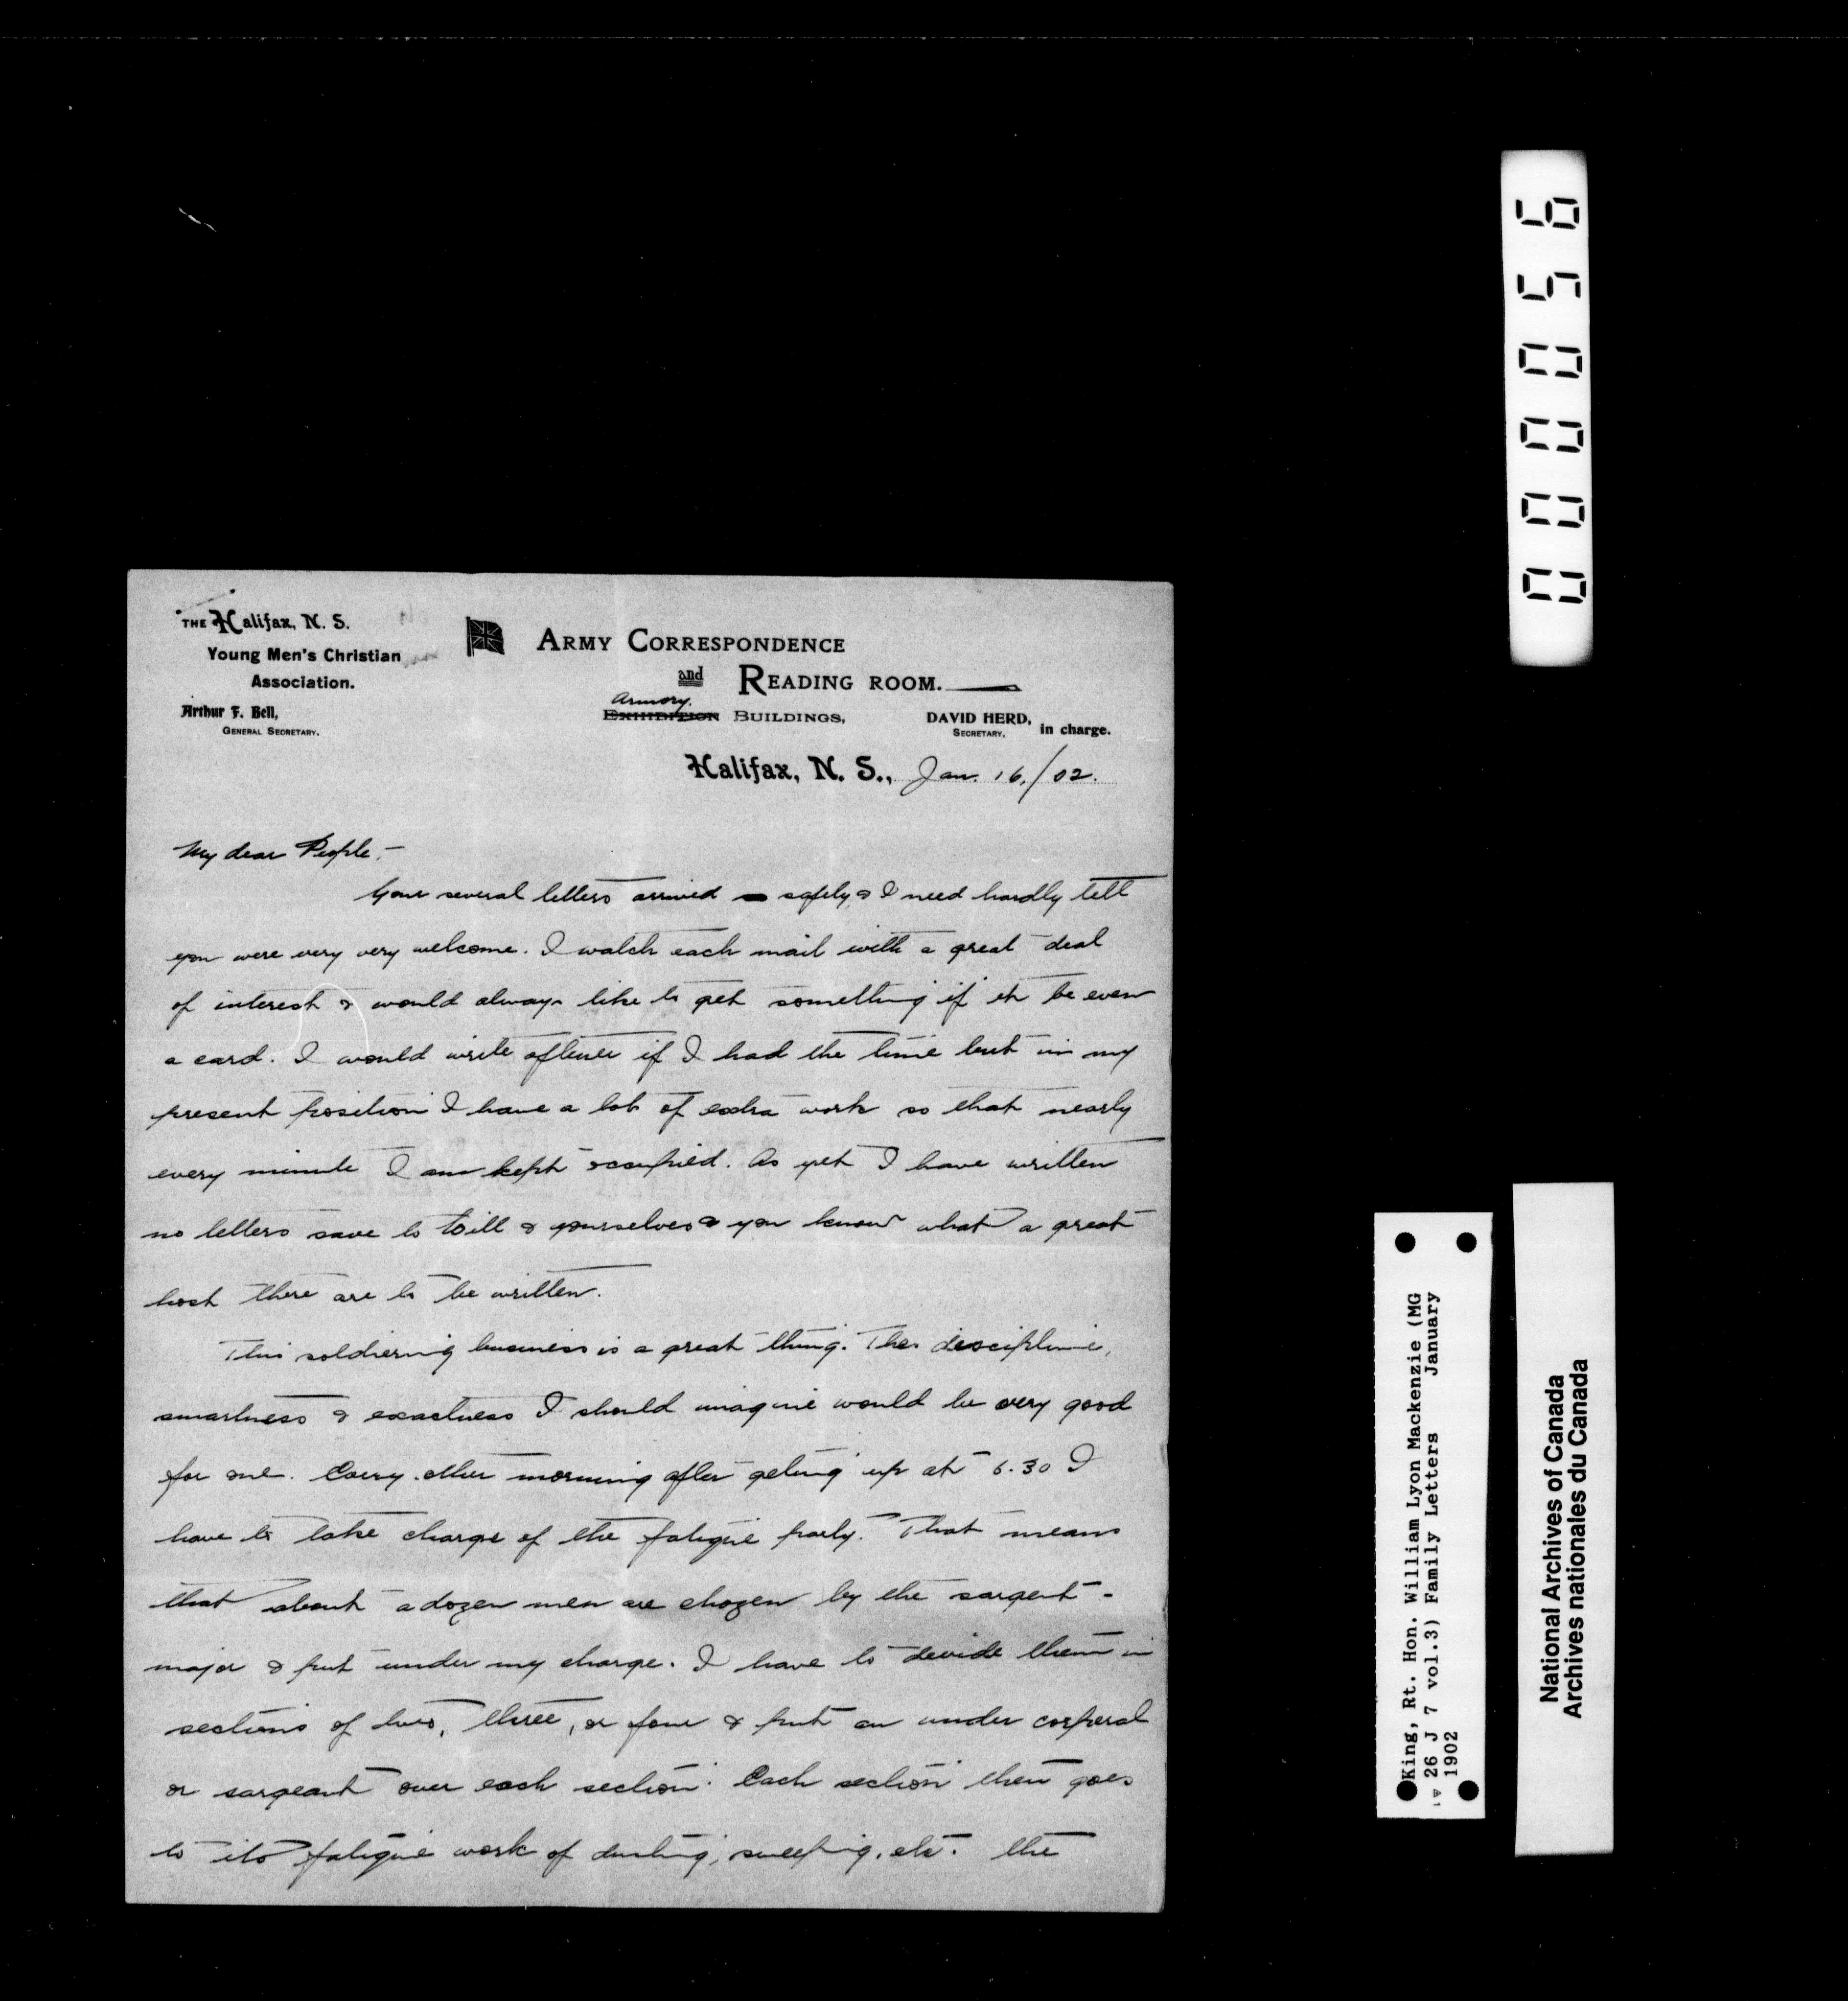 THE Halifax, N. S.
Young Men's Christian
Association.
Arthur F. Bell,
GENERAL SECRETARY.
ARMY CORRESPONDENCE
and READING ROOM.
Armory.
EXHIBITION BUILDINGS,
DAVID HERD,
SECRETARY,
in charge.
Halifax, N. S., Jan. 16,/02.
My dear People,-
Your several letters arrived safely, & I need hardly tell
you were very very welcome. I watch each mail with a great deal
of interest & would always like to get something if it be even
a card. I would write oftener if I had the time but in my
present position I have a lot of extra work so that nearly
every minute I am kept occupied. As yet I have written
no letters save to Will & yourselves & you know what a great
host there are to be written.
This soldiering business is a great thing. The discipline,
smartness & exactness I should imagine would be very good
for one. Every other morning after geting up at 6.30 I
have to take charge of the fatigue party. That means
that about a dozen men are chozen by the sargent-
major & put under my charge. I have to devide them in
sections of two, three, or four & put an under corporal
or sargeant over each section. Each section then goes
to its fatigue work of dusting, sweeping, etc. the
000056
King, Rt. Hon. William Lyon Mackenzie (MG
26 J 7 vol.3) Family Letters January
1902
National Archives of Canada
Archives nationales du Canada